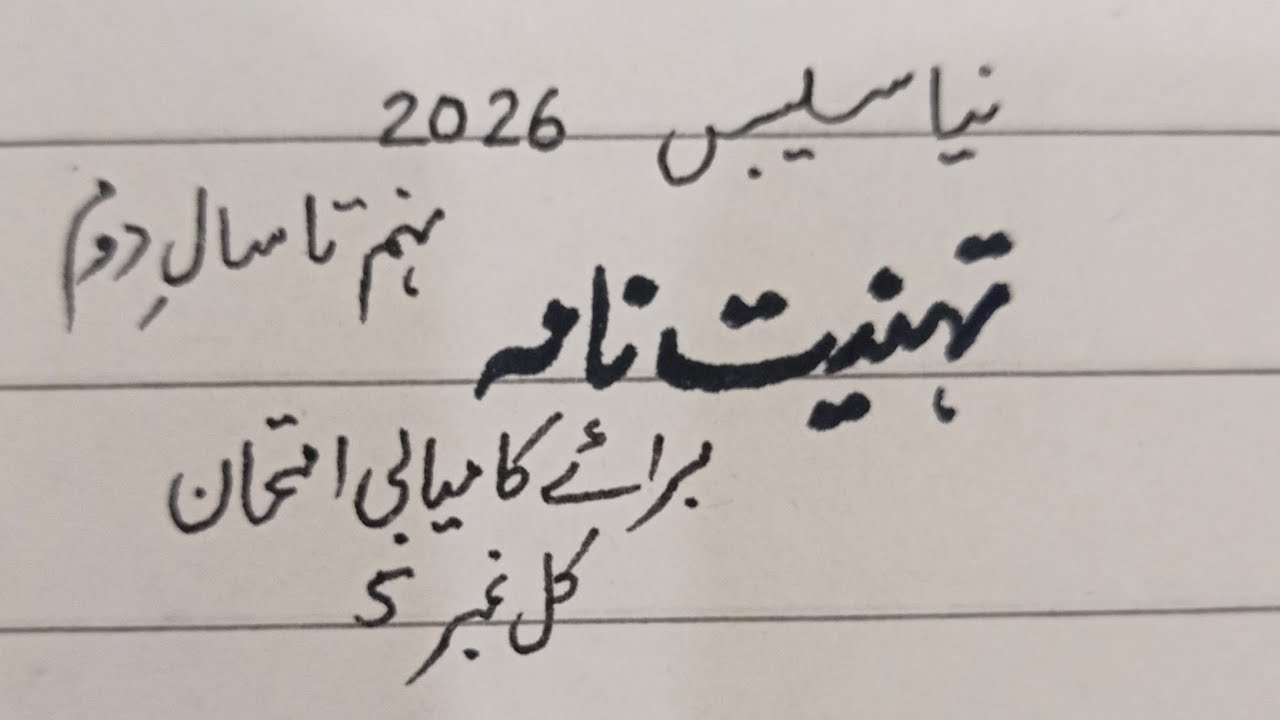 نیا سلیبس 2026
نہم تا سالِ دوم
تہنیت نامہ
برائے کامیابی امتحان
کل نمبر 5